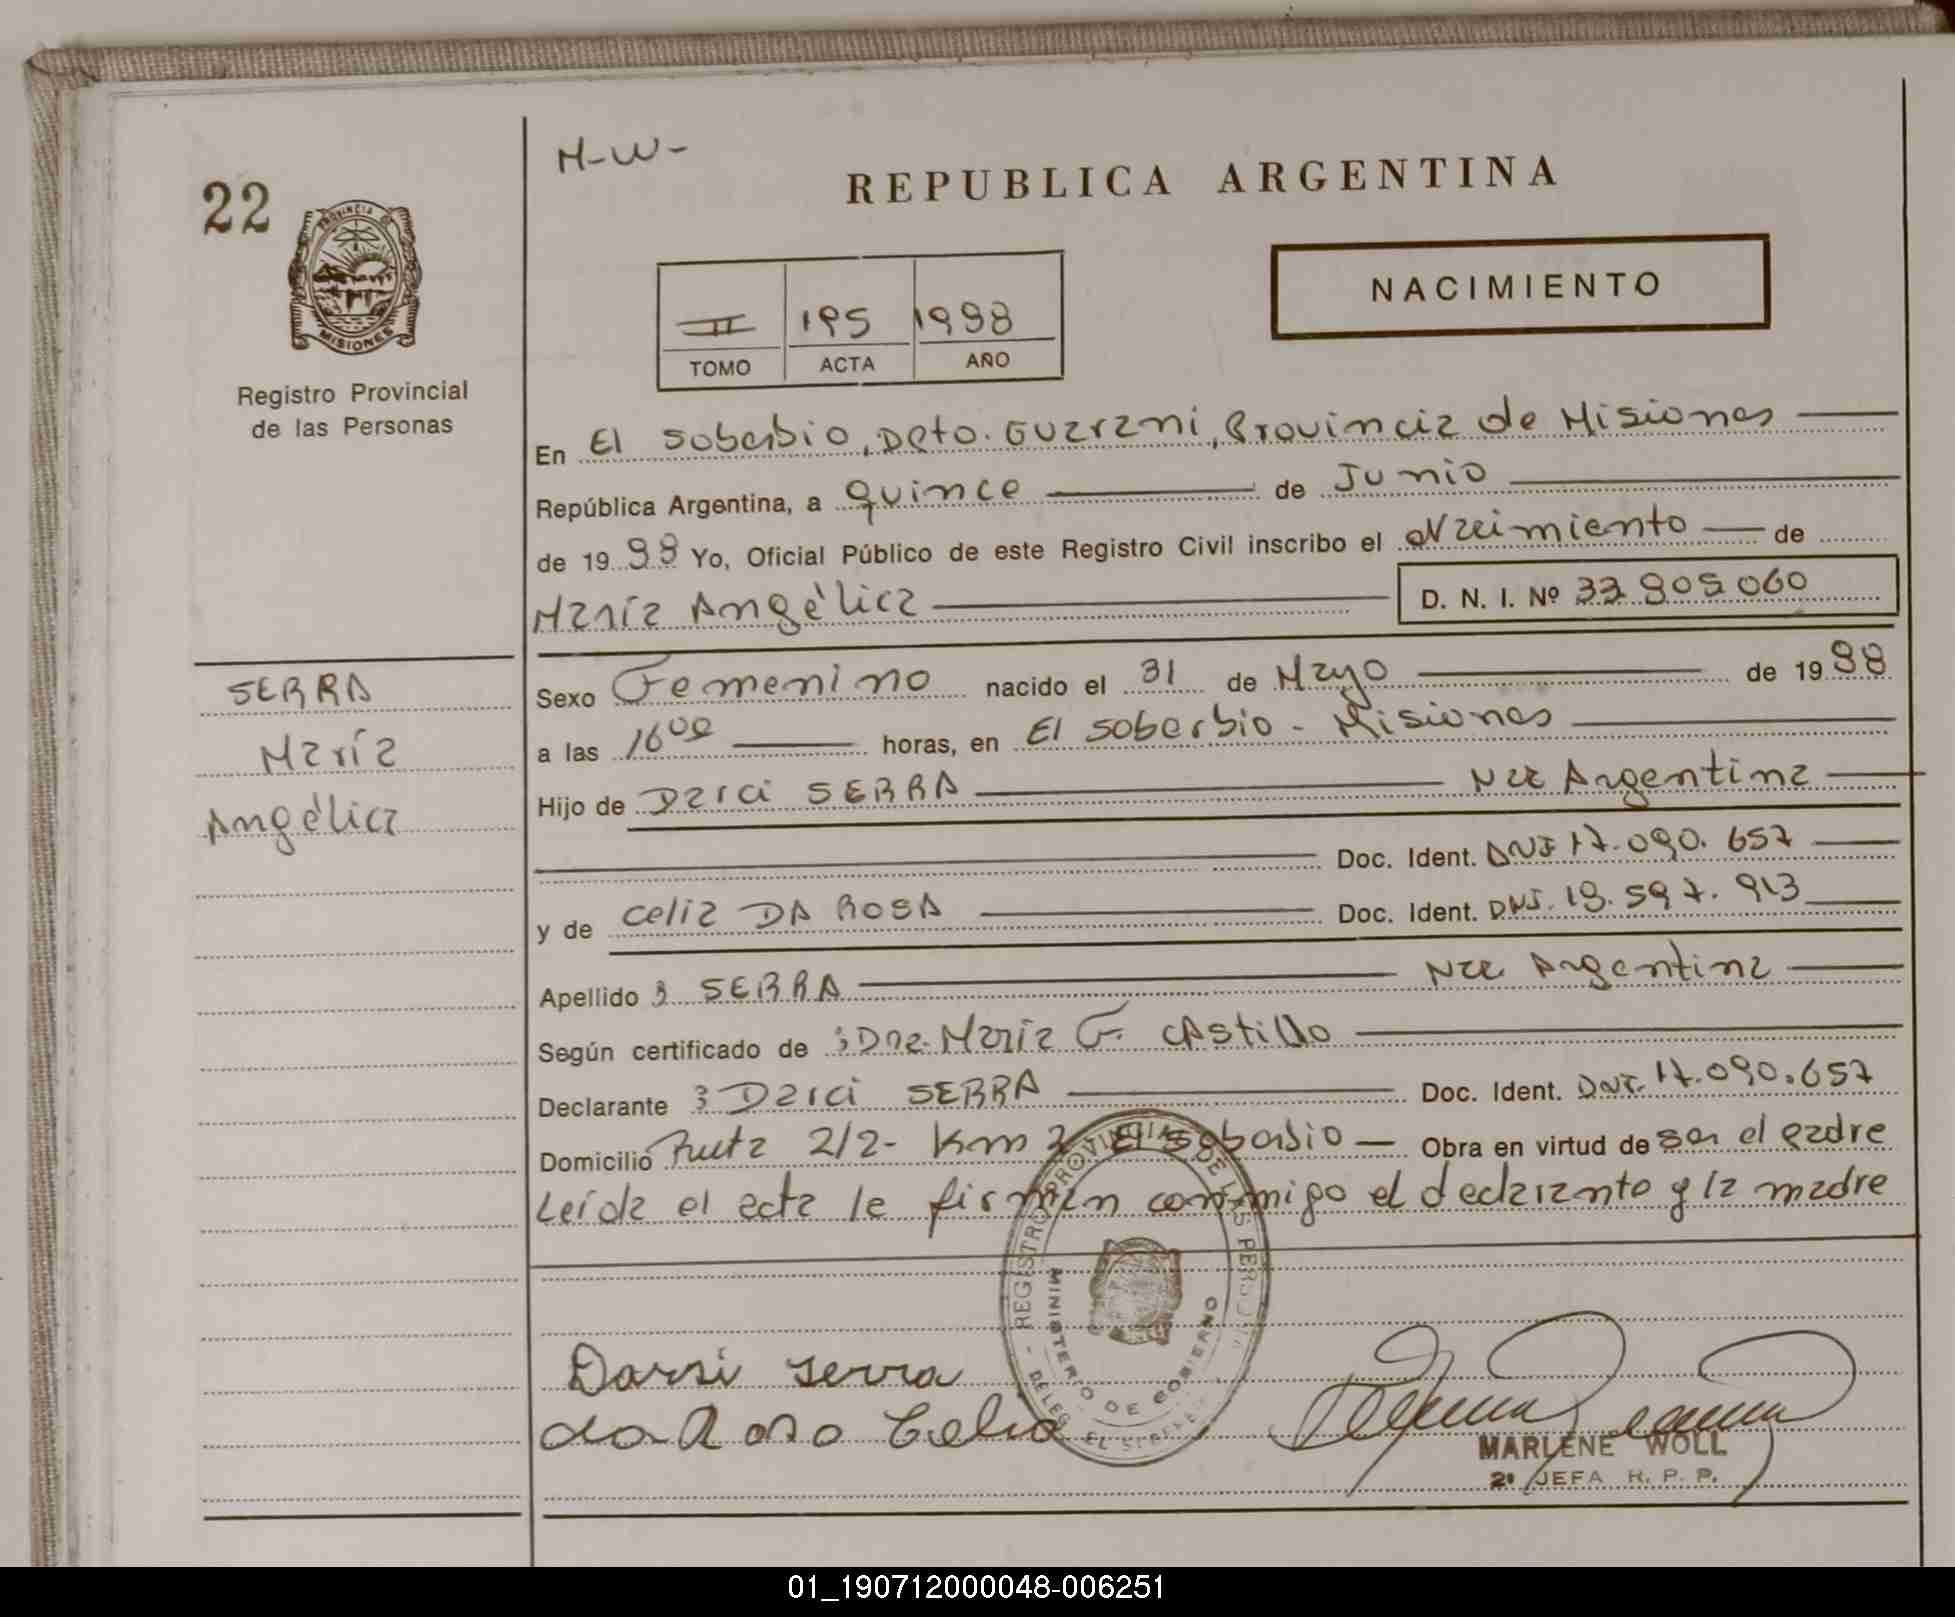 22
M-W-
REPUBLICA ARGENTINA
PROVINCIA DE MISIONES
NACIMIENTO
II 195 1988
TOMO ACTA AÑO
Registro Provincial
de las Personas
En El Soberbio, Dpto. Guaraní, Provincia de Misiones
República Argentina, a quince de Junio
de 19 88 Yo, Oficial Público de este Registro Civil inscribo el Nacimiento de
María Angélica D. N. I. Nº 33.905.060
SERRA
María
Angélica
Sexo Femenino nacido el 31 de Mayo de 19 88
a las 16 00 horas, en El Soberbio - Misiones
Hijo de Darci SERRA Nac Argentina
Doc. Ident. DNI 17.090.657
y de Celia DA ROSA Doc. Ident. DNI. 18.597.913
Apellido : SERRA Nac Argentina
Según certificado de : Dra. María F. CAstillo
Declarante : Darci SERRA Doc. Ident. DNI. 17.090.657
Domicilio Ruta 2/2- Km 2 El Soberbio Obra en virtud de ser el padre
Leída el acta la firman conmigo el declarante y la madre
REGISTRO PROVINCIAL DE LAS PERSONAS
MINISTERIO DE GOBIERNO
Darsi Serra
da Rosa Celia
MARLENE WOLL
2ª JEFA R. P. P.
01_190712000048-006251